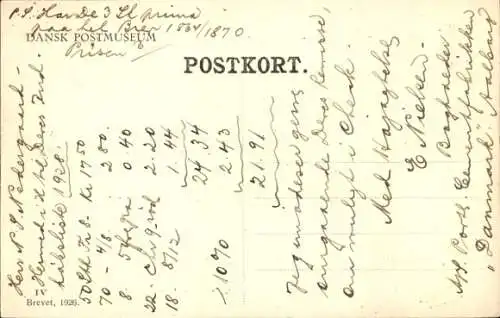 P.S. Har De 3 Sk prima
paa hel Brev 1854/1870.
Prisen
DANSK POSTMUSEUM
POSTKORT.
Herr N. P. Nedergaard -
Hermed til Deres Ind-
købsliste 1928
50 Stk Tr 8. Kr 17 50
70 - 4/8 2.80
8. 5 0.40
22. Chr 9. 2.20
18. 8/12 1.44
24.34
÷ 10 % 2.43
21.91
Jeg imødeser gerne
angaaende Deres Remisse,
om muligt i Check.
Med Højagtelse
E Nielsen -
Bogholder
A/S Portl. Cementfabrikken
"Danmark", Aalborg
IV
Brevet, 1926.